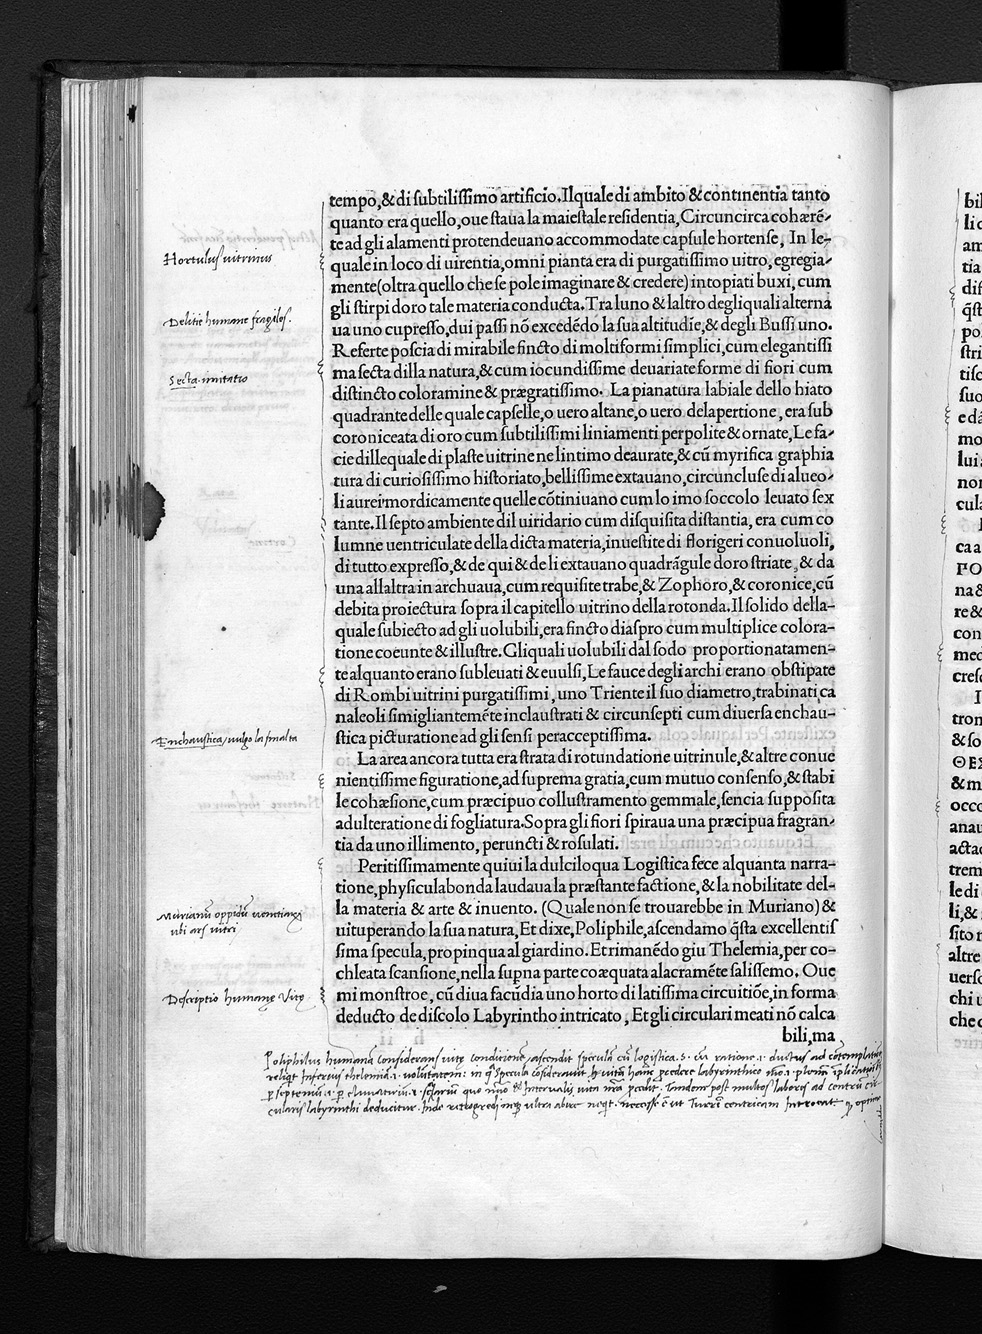 tempo,& di subtilissimo artificio.Ilquale di ambito & continentia tanto
quanto era quello,oue staua la maiestale residentia,Circuncirca cohærẽ-
te ad gli alamenti protendeuano accommodate capsule hortense, In le-
quale in loco di uirentia,omni pianta era di purgatissimo uitro,egregia-
mente(oltra quello che se pole imaginare & credere) intopiati buxi, cum
gli stirpi doro tale materia conducta. Tra luno & laltro degliquali alterna
ua uno cupresso,dui passi nõ excedẽdo la sua altitudīe,& degli Bussi uno.
Referte poscia di mirabile fincto di moltiformi simplici,cum elegantissi
ma secta dilla natura,& cum iocundissime deuariate forme di fiori cum
distincto coloramine & prægratissimo. La pianatura labiale dello hiato
quadrante delle quale capselle,o uero altane,o uero delapertione, era sub
coroniceata di oro cum subtilissimi liniamenti perpolite & ornate, Le fa-
cie dillequale di plaste uitrine ne lintimo deaurate,& cũ myrifica graphia
tura di curiosissimo historiato,bellissime extauano,circuncluse di alueo-
li aurei mordicamente quelle cõtiniuano cum lo imo soccolo leuato sex
tante.Il septo ambiente dil uiridario cum disquisita distantia, era cum co
lumne uentriculate della dicta materia,inuestite di florigeri conuoluoli,
di tutto expresso,& de qui & de li extauano quadrãgule doro striate, & da
una allaltra in archuaua,cum requisite trabe,& Zophoro,& coronice,cũ
debita proiectura sopra il capitello uitrino della rotonda.Il solido della-
quale subiecto ad gli uolubili,era fincto diaspro cum multiplice colora-
tione coeunte & illustre.Gliquali uolubili dal sodo proportionatamen-
te alquanto erano subleuati & euulsi, Le fauce degli archi erano obstipate
di Rombi uitrini purgatissimi, uno Triente il suo diametro,trabinati ca
naleoli simigliantemẽte inclaustrati & circunsepti cum diuersa enchau-
stica picturatione ad gli sensi peracceptissima.
La area ancora tutta era strata di rotundatione uitrinule,& altre conue
nientissime figuratione,ad suprema gratia,cum mutuo consenso,& stabi
le cohæsione,cum præcipuo collustramento gemmale,sencia supposita
adulteratione di fogliatura.Sopra gli fiori spiraua una præcipua fragran-
tia da uno illimento, peruncti & rosulati.
Peritissimamente quiui la dulciloqua Logistica fece alquanta narra-
tione,physiculabonda laudaua la præstante factione,& la nobilitate del-
la materia & arte & inuento. (Quale non se trouarebbe in Muriano) &
uituperando la sua natura, Et dixe, Poliphile,ascendamo q̃sta excellentis
sima specula, propinqua al giardino. Et rimanẽdo giu Thelemia, per co-
chleata scansione,nella supna parte coæquata alacramẽte salissemo. Oue
mi monstroe, cũ diua facũdia uno horto di latissima circuitiõe,in forma
deducto de discolo Labyrintho intricato, Et gli circulari meati nõ calca
bili,ma
Hortulus uitrinus
Delitie humane fragiles.
Secta. imitatio
Enchaustica, uulgo la smalta
Murianũ oppidũ uenetiarum
ubi ars uitri
Descriptio humanę Vitę
Poliphilus humanam considerans uitę condicionem, ascendit speculã cũ logistica .s. cũ ratione .i. ductus ad cõtemplationem